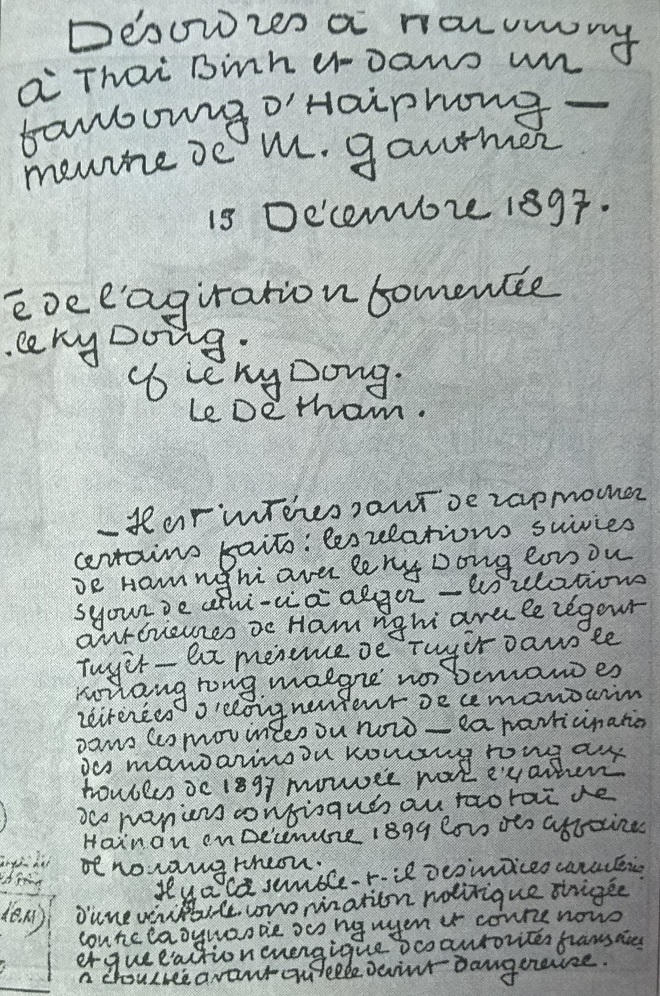 Désordres à
à Thai Binh et dans un
faubourg d'Haiphong —
meurtre de M. Gauthier
15 Décembre 1897.
é de l'agitation fomentée
.le Ky Dong.
cf le Ky Dong.
Le Dê tham.
— Il est intéressant de rapprocher
certains faits : les relations suivies
de Ham nghi avec le Ky Dong lors du
séjour de celui-ci à alger — les relations
antérieures de Ham nghi avec le régent
Tuyêt — la présence de Tuyêt dans le
Kouang tong malgré nos demandes
réitérées d'éloignement de ce mandarin
dans les provinces du nord — la participatio
des mandarins du Kouang tong aux
troubles de 1897 prouvée par l'examen
des papiers confisqués au taotaï de
Hainan en Décembre 1899 lors des affaires
de
Il y a là semble-t-il des indices caractéris
d'une véritable conspiration politique dirigée
contre la dynastie des nguyen et contre nous
et que l'action énergique des autorités françaises
a étouffée avant qu'elle devint dangereuse.